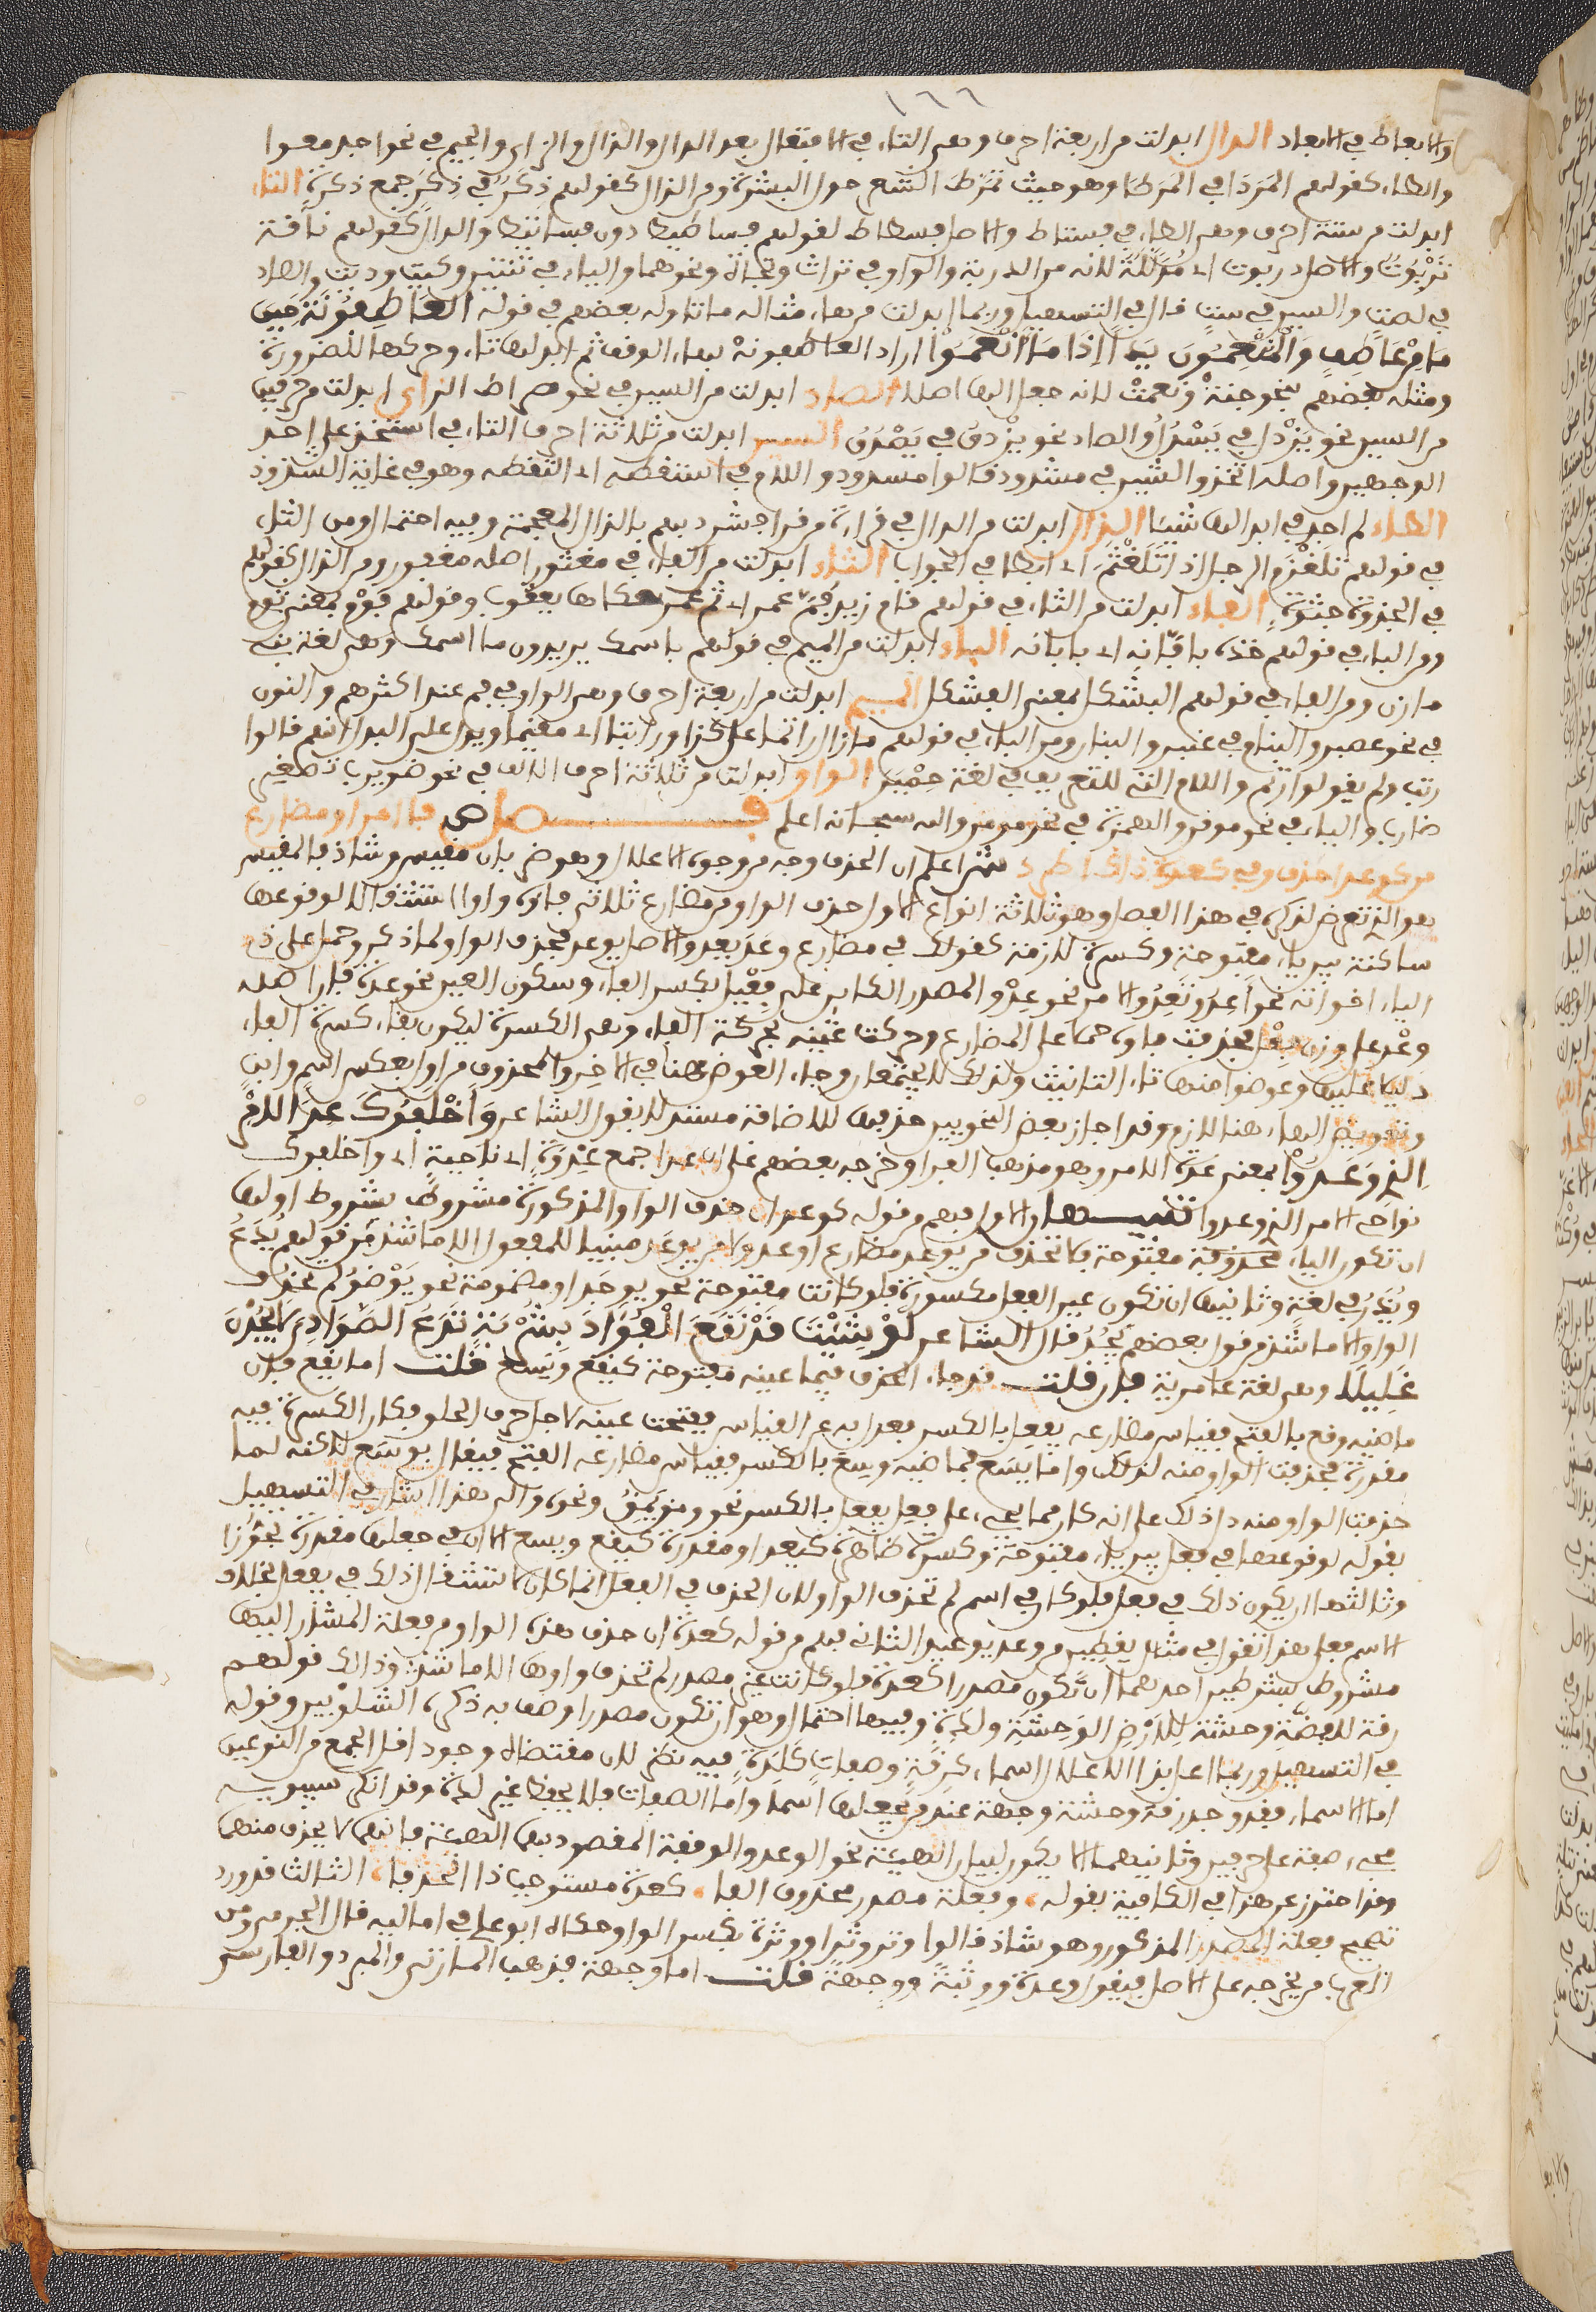 ١٦٦
والابعاط في الابعاد الدال ابدلت من اربعة احرف وهي التاء في الافتعال بعد الدال والذال والزاي والجيم في نحو اجدمعوا
والطاء كقولهم المردا في المرطا وهو حيث تمرط الشعر حول السرة ومن الذال كقولهم دكر في ذكر جمع ذكرة التاء
ابدلت من ستة احرف وهي الطاء في فستاط والاصل فسطاط لقولهم فساطيط دون فساتيط والدال كقولهم ناقة
تربوت والاصل دربوت اي مذللة لانه من الدربة والواو في تراث وتجاه ونحوهما والياء في ثنتين وكيت وذيت والصاد
في لصت والسين في ست قال في التسهيل وربما ابدلت من هاء مثاله ما تاوله بعضهم في قوله العاطفونة حين
ما من عاطف والمنعمون يدا اذا ما انعموا اراد العاطفونه بهاء الوقف ثم ابدلها تاء وحركها للضرورة
ومثله بعضهم بنحو جنة ونعمت لانه جعل الهاء اصلا الصاد ابدلت من السين في نحو صراط الزاي ابدلت من حرفين
من السين نحو يزدل في يسدل والصاد نحو يزدق في يصدق السين ابدلت من ثلاثة احرف التاء في استخذ على احد
الوجهين واصله اتخذ والشين في مشدود قالوا مسدود واللام في استقطه اي التقطه وهو في غاية الشذوذ
الظاء لم اجد في ابدالها شيئا الذال ابدلت من الدال في قراءة من قرا فشرذ بهم بالذال المعجمة وفيه احتمال ومن الثاء
في قولهم تلعذم الرجل اذا تلعثم اي ابطا في الجواب الثاء ابدلت من الفاء في مغثور اصله مغفور ومن الذال كقولهم
في الجذوة جثوة الفاء ابدلت من الثاء في قولهم قام زيد فم عمرو اي ثم عمرو حكاها يعقوب وقولهم فوم بمعنى ثوم
ومن الباء في قولهم خذه بافانه اي بابانه الباء ابدلت من الميم في قولهم باسمك يريدون ما اسمك وهي لغة بني
مازن ومن الفاء في قولهم البشكل بمعنى الفشكل الميم ابدلت من اربعة احرف وهي الواو في فم عند اكثرهم والنون
في نحو عمبر والبنام في عنبر والبنان ومن الباء في قولهم ما زال راتما على كذا وراتبا اي مقيما ويدل على البدل انهم قالوا
رتب ولم يقولوا رتم واللام التي للتعريف في لغة حمير الواو ابدلت من ثلاثة احرف الالف في نحو ضويرب تصغير
ضارب والياء في نحو موقن والهمزة في نحو مومن والله سبحانه اعلم فصل ص فا امر او مضارع
من كوعد احذف وفي كعدة ذاك اطرد ش اعلم ان الحذف وجه من وجوه الاعلال وهو ضربان مقيس وشاذ فالمقيس
هو الذي تعرض لذكره في هذا الفصل وهو ثلاثة انواع الاول حذف الواو من مضارع ثلاثي فاوه واو استثقالا لوقوعها
ساكنة بين ياء مفتوحة وكسرة لازمة كقولك في مضارع وعد يعد والاصل يوعد فحذف الواو لما ذكر وحمل على ذي
الياء اخواته نحو اعد ونعد والامر نحو عد والمصدر الكائن على فعل بكسر الفاء وسكون العين نحو عدة فان اصله
وعد على وزن فعل فحذفت فاوه حملا على المضارع وحركت عينه بحركة الفاء وهي الكسرة ليكون بقاء كسرة الفاء
دليلا عليها وعوضوا منها تاء التانيث ولذلك لا يجتمعان وجاء العوض هنا في الاخر والمحذوف من اول بعكس اسم وابن
وتعويض الهاء هنا لازم وقد اجاز بعض النحويين حذفها للاضافة مستدلا بقول الشاعر واخلفوك عدا الامر
الذي وعدوا بمعنى عدة الامر وهو مذهب الفراء وخرجه بعضهم على ان عدا جمع عدوة اي ناحية اي واخلفوك
نواحي الامر الذي وعدوا تنبيهان الاول فهم من قوله كوعد ان حذف الواو المذكورة مشروط بشروط اولها
ان تكون الياء مفتوحة فلا تحذف من يوعد مضارع اوعد ولا من يوعد مبنيا للمفعول الا ما شذ من قولهم يدع
ويذر في لغة وثانيها ان تكون عين الفعل مكسورة فلو كانت مفتوحة نحو يوجل او مضمومة نحو يوضو لم تحذف
الواو الا ما شذ من قول بعضهم يجد قال الشاعر لو شئت قد نقع الفواد بشربة تدع الصوادي لا يجدن
غليلا وهي لغة عامرية فان قلت قد جاء الحذف فيما عينه مفتوحة كيقع ويسع قلت اما يقع فان
ماضيه وقع بالفتح فقياس مضارعه يفعل بالكسر فعدل به عن القياس ففتحت عينه لاجل حرف الحلق فكان الكسرة فيه
مقدرة فحذفت الواو منه لذلك واما يسع فماضيه وسع بالكسر فقياس مضارعه الفتح فيقال يوسع لكنه لما
حذفت الواو منه دل ذلك على انه كان مما يجيء على فعل يفعل بالكسر نحو ومق يمق ونحوه والى هذا اشار في التسهيل
بقوله لوقوعها في فعل بين ياء مفتوحة وكسرة ظاهرة كيعد او مقدرة كيقع ويسع الا ان في جعلها مقدرة تجوزا
وثالثها ان يكون ذلك في فعل فلو كان في اسم لم تحذف الواو لان الحذف في الفعل انما كان لاستثقال ذلك في يفعل بخلاف
الاسم فعلى هذا تقول في مثال يقطين من وعد يوعيد الثاني فهم من قوله كعدة ان حذف هذه الواو من فعلة المشار اليها
مشروط بشرطين احدهما ان تكون مصدرا كعدة فلو كانت غير مصدر لم تحذف واوها الا ما شذ وذلك قولهم
رقة للفضة وحشة للارض الوحشة ولدة وفيها احتمال وهو ان تكون مصدرا وصف به ذكره الشلوبين وقوله
في التسهيل وربما اعل بذا الاعلال اسماء كرقة وصفات كلدة فيه نظر لان مقتضاه وجود اقل الجمع من النوعين
اما الاسماء فقد وجد رقة وحشة وجهة عند من جعلها اسما واما الصفات فلا يحفظ غير لدة وقد انكر سيبويه
مجيء صفة على حرفين وثانيهما الا يكون لبيان الهيئة نحو الوعدة والوقفة المقصود بهما الهيئة فانهما لا يحذف منهما
وقد احترز عن هذا في الكافية بقوله وفعلة مصدر محذوف الفا كعدة مستوجبا ذا الحذفا الثالث قد ورد
تصحيح فعلة المصدر المذكور وهو شاذ قالوا وتر وترا ووترة بكسر الواو وحكاه ابو علي في اماليه قال الجرمي ومن
العرب من يخرجه على الاصل فيقول وعدة ووثبة ووجهة قلت اما وجهة فذهب المازني والمبرد والفارسي